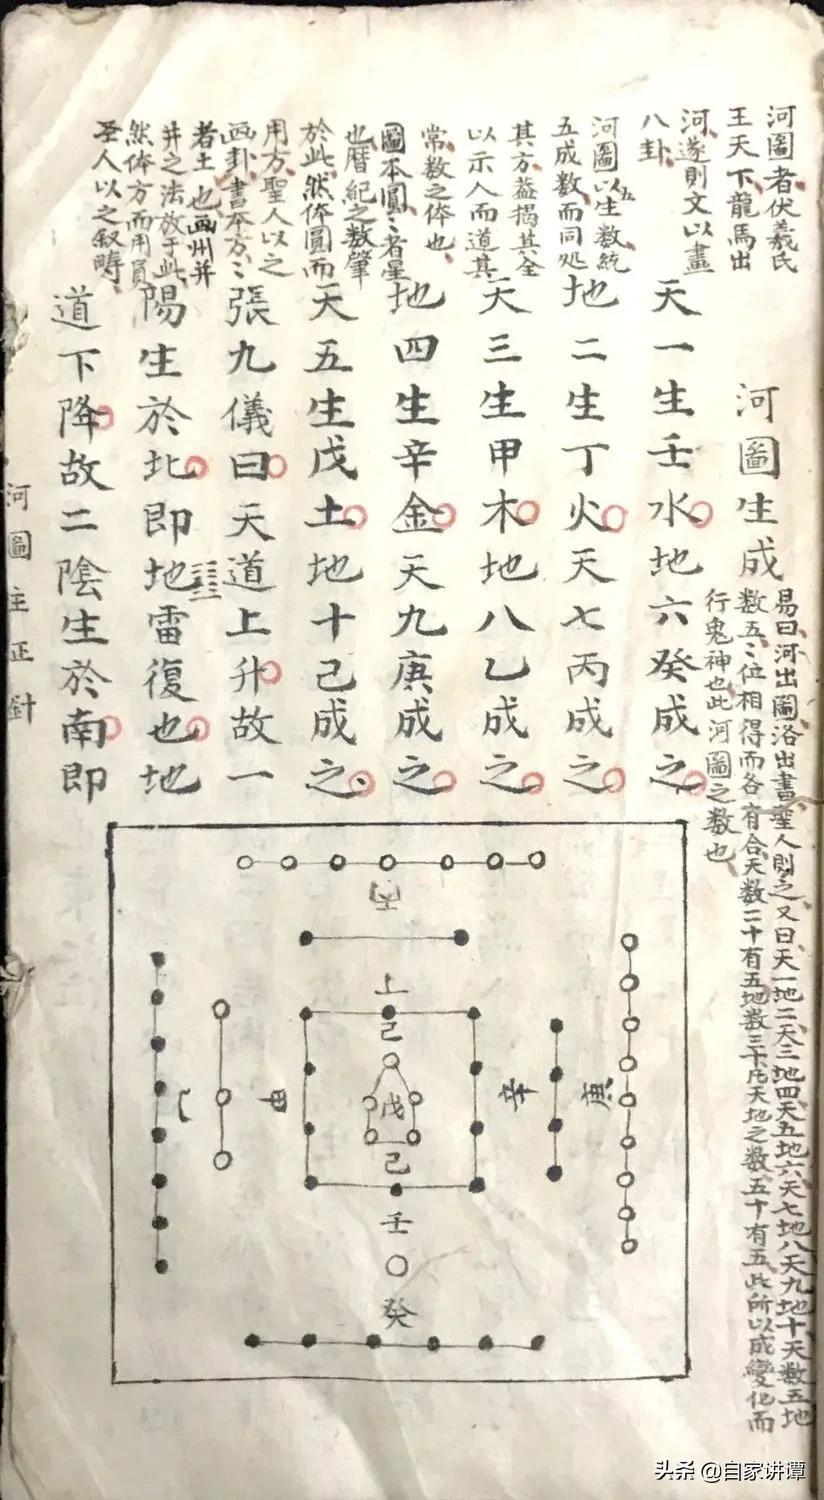 河圖者伏羲氏
王天下龍馬出
河遂則文以畫
八卦
河圖以五生數統
五成数而同处
其方蓋揭其全
以示人而道其
常数之体也
圖本圓〻者星
也曆紀之数肇
於此然体圓而
用方聖人以之
画卦書本方〻
者土也画州井
井之法放于此
然体方而用員
圣人以之叙疇
河圖生成
易曰河出圖洛出書聖人則之又曰天一地二天三地四天五地六天七地八天九地十天数五地
数五〻位相得而各有合天数二十有五地数三十凡天地之数五十有五此所以成變化而
行鬼神也此河圖之数也
天一生壬水地六癸成之
地二生丁火天七丙成之
天三生甲木地八乙成之
地四生辛金天九庚成之
天五生戊土地十己成之
張九儀曰天道上升故一
陽生於北即地雷復也地
道下降故二陰生於南即
河圖主正針
上
己
戊
己
壬
癸
甲
辛
庚
头条 @自家讲谭